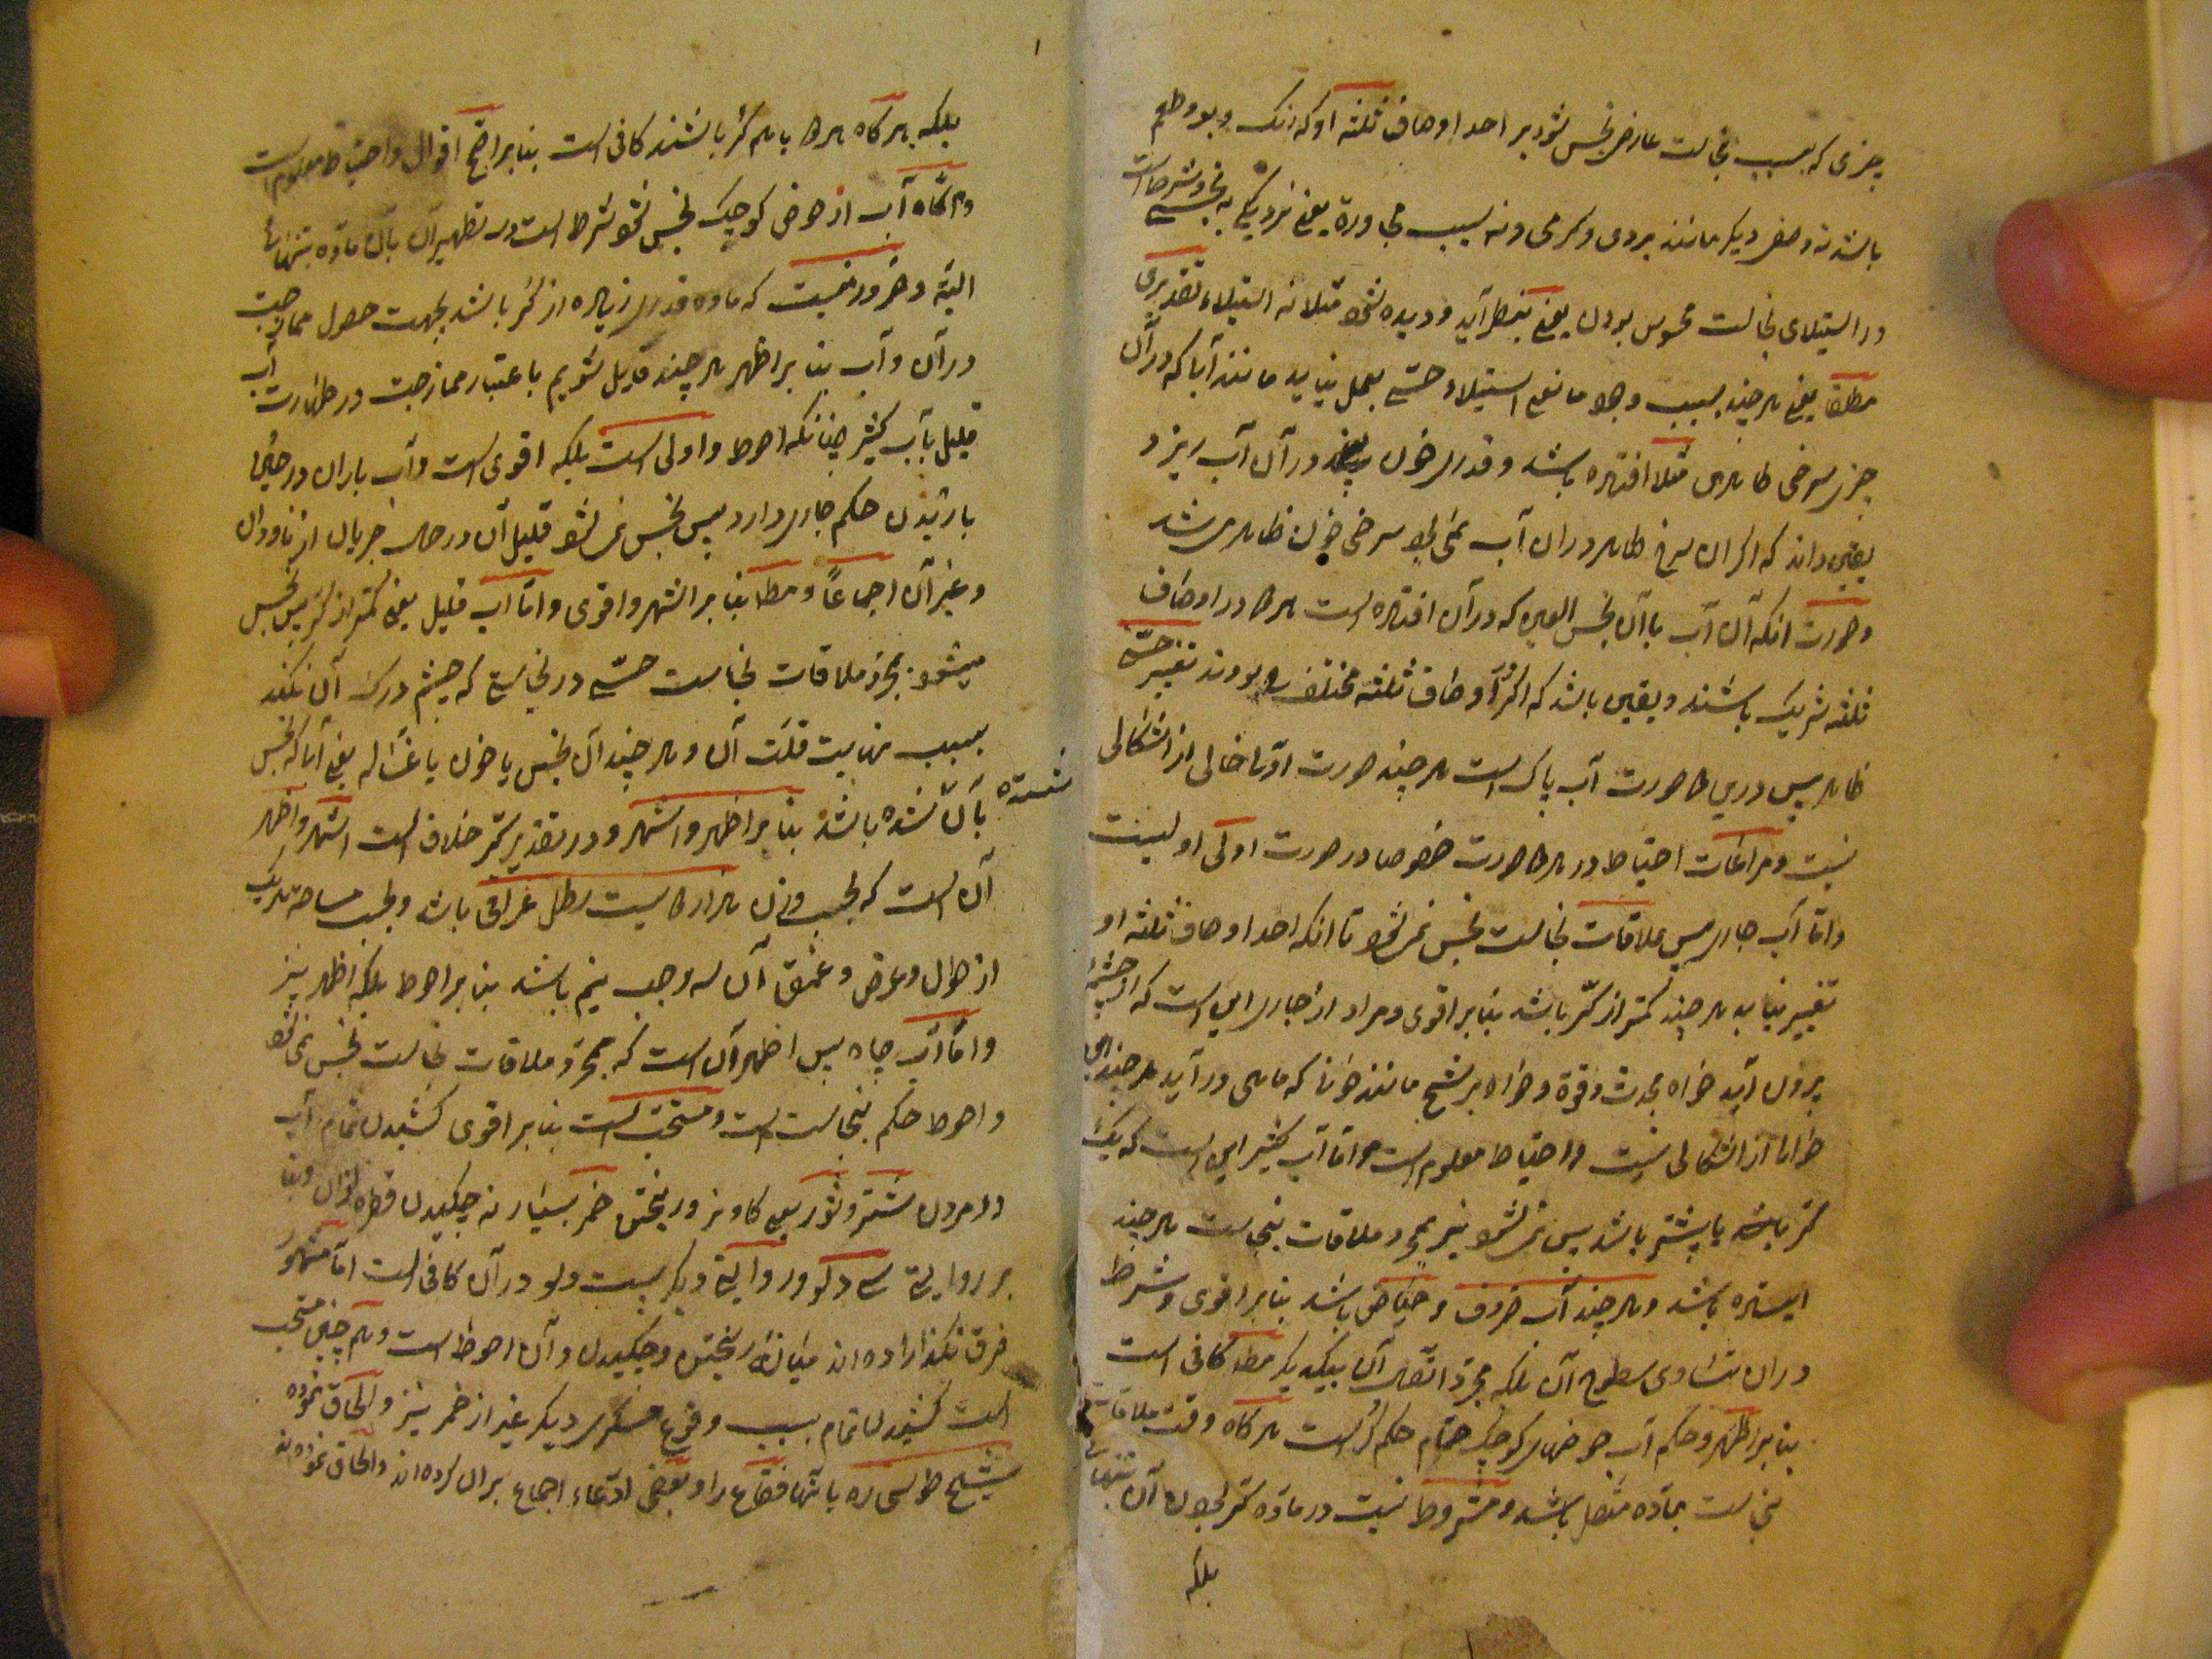 چیزی که بسبب نجاست عارض نجس شود بر احد اوصاف ثلثه او که رنگ و بو و طعم
باشد نه وصف دیگر مانند سردی و گرمی و نه بسبب مجاورة یعنی نزدیکی به نجاست و شرط است
در استیلای نجاست محسوس بودن یعنی بنظر آید و دیده شود مثلا نه استیلاء تقدیری
مطلقا یعنی هر چند بسبب وجود مانعی استیلاء حسّی بعمل نیاید مانند آبا که در آن
چیز سرخی طاهری مثلا افتاده باشد و قدری خون در آن آب ریزد
یقین داند که اگر آن سرخ طاهر در آن آب نمی بود سرخی خون ظاهر می شد
و صورت آنکه آن آب با آن نجس العین که در آن افتاده است هر دو در اوصاف
ثلثه شریک باشند و یقین باشد که اگر در اوصاف ثلثه مختلف می بودند تغییر حسّی
ظاهر پس در این دو صورت آب پاک است هر چند صورت اولا خالی از اشکالی
نیست و مراعات احتیاط در هر دو صورت خصوصا در صورت اولی اولیست
و امّا آب جاری پس بملاقات نجاست نجس نمی شود تا آنکه احد اوصاف ثلثه او
تغییر نیابد هر چند کمتر از کرّ باشد بنابر اقوی و مراد از جاری این است که از چشمه
بیرون آید خواه بحدت و قوة و خواه برشح مانند خونا که ماهی در آید هر چند این
خوانا از اشکالی نیست و احتیاط معلوم است و امّا آب کثیر این است که یک
کر باشد یا بیشتر باشد پس نمی شود نیز بمجرد ملاقات بنجاست هر چند
ایستاده باشد و هر چند آب ظروف و حیاض باشد بنابر اقوی و شرط
در آن تساوی سطوح آن بلکه مجرّد اتّصال آن بیکدیگر مطلقا کافی است
بنابر اظهر و حکم آب حوضهای کوچک حمّام حکم کر است هر گاه وقت ملاقات
نجاست بمادّه متصل باشد و مشروط نیست در مادّه کر بودن آن بتنهائی
بلکه
بلکه هر گاه هر دو با هم کرّ باشند کافی است بنابر ارجح اقوال و احتیاط معلوم است
و هر گاه آب از حوض کوچک نجس شود شرط است در تطهیر آن بآن مادّه بتنهائی
البتّه و ضرور نیست که مادّه قدری زیاده از کرّ باشد بجهت حصول ممازجت
در آن و آب بنابر اظهر هر چند قایل شویم باعتبار ممازجت در طهارت آب
قلیل بآب کثیر چنانکه احوط و اولی است بلکه اقوی است و آب باران در حین
باریدن حکم جاری دارد پس نجس نمی شود قلیل آن در حال جریان از ناودان
و غیر آن اجماعاً و مطلقا بنابر اشهر و اقوی و امّا آب قلیل یعنی کمتر از کرّ پس نجس
میشود بمجرّد ملاقات نجاست حسّی در نجاستی که چشم درک آن نکند
بسبب نهایت قلّت آن و هر چند آن نجس یا خون یا غسّاله یعنی آبا که نجس
شسته بآن شده باشد بنابر اظهر و اشهر و در تقدیر کرّ خلاف است اشهر و اظهر
آن است که بحسب وزن هزار و دویست رطل عراقی باشد و بحسب مساحت هر یک
از طول و عرض و عمق آن سه وجب نیم باشد بنابر احوط بلکه اظهر نیز
و امّا آب چاه پس اظهر آن است که بمجرّد ملاقات نجاست نجس نمی شود
و احوط حکم بنجاست است و مستحب است بنابر اقوی کشیدن تمام آب
در مردن شتر و ثور یعنی گاو نر و ریختن خمر بسیار نه چکیدن قطره از آن و بنا
بر روایتی سی دلو و در روایتی دیگر بیست دلو در آن کافی است امّا مشهور
فرق نگذارده اند میانه ریختن و چکیدن و آن احوط است و هم چنین مستحب
است کشیدن تمام بسبب وقوع مسکری دیگر غیر از خمر نیز و الحاق نموده
شیخ طوسی ره بآنها فقاع را و بعضی ادّعاء اجماع بر آن کرده اند و الحاق نموده